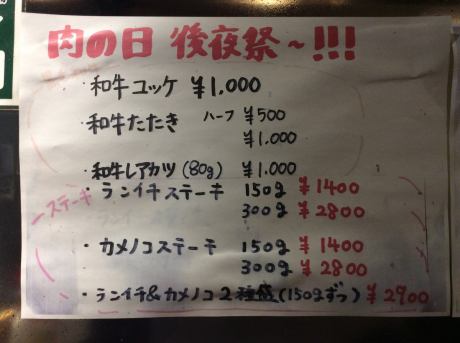 肉の日 後夜祭~!!!
・和牛ユッケ ¥1,000
・和牛たたき ハーフ ¥500
¥1,000
・和牛レアカツ (80g) ¥1,000
ーステーキ
・ランイチステーキ 150g ¥1400
300g ¥2800
・カメノコステーキ 150g ¥1400
300g ¥2800
・ランイチ&カメノコ2種盛(150gずつ) ¥2900